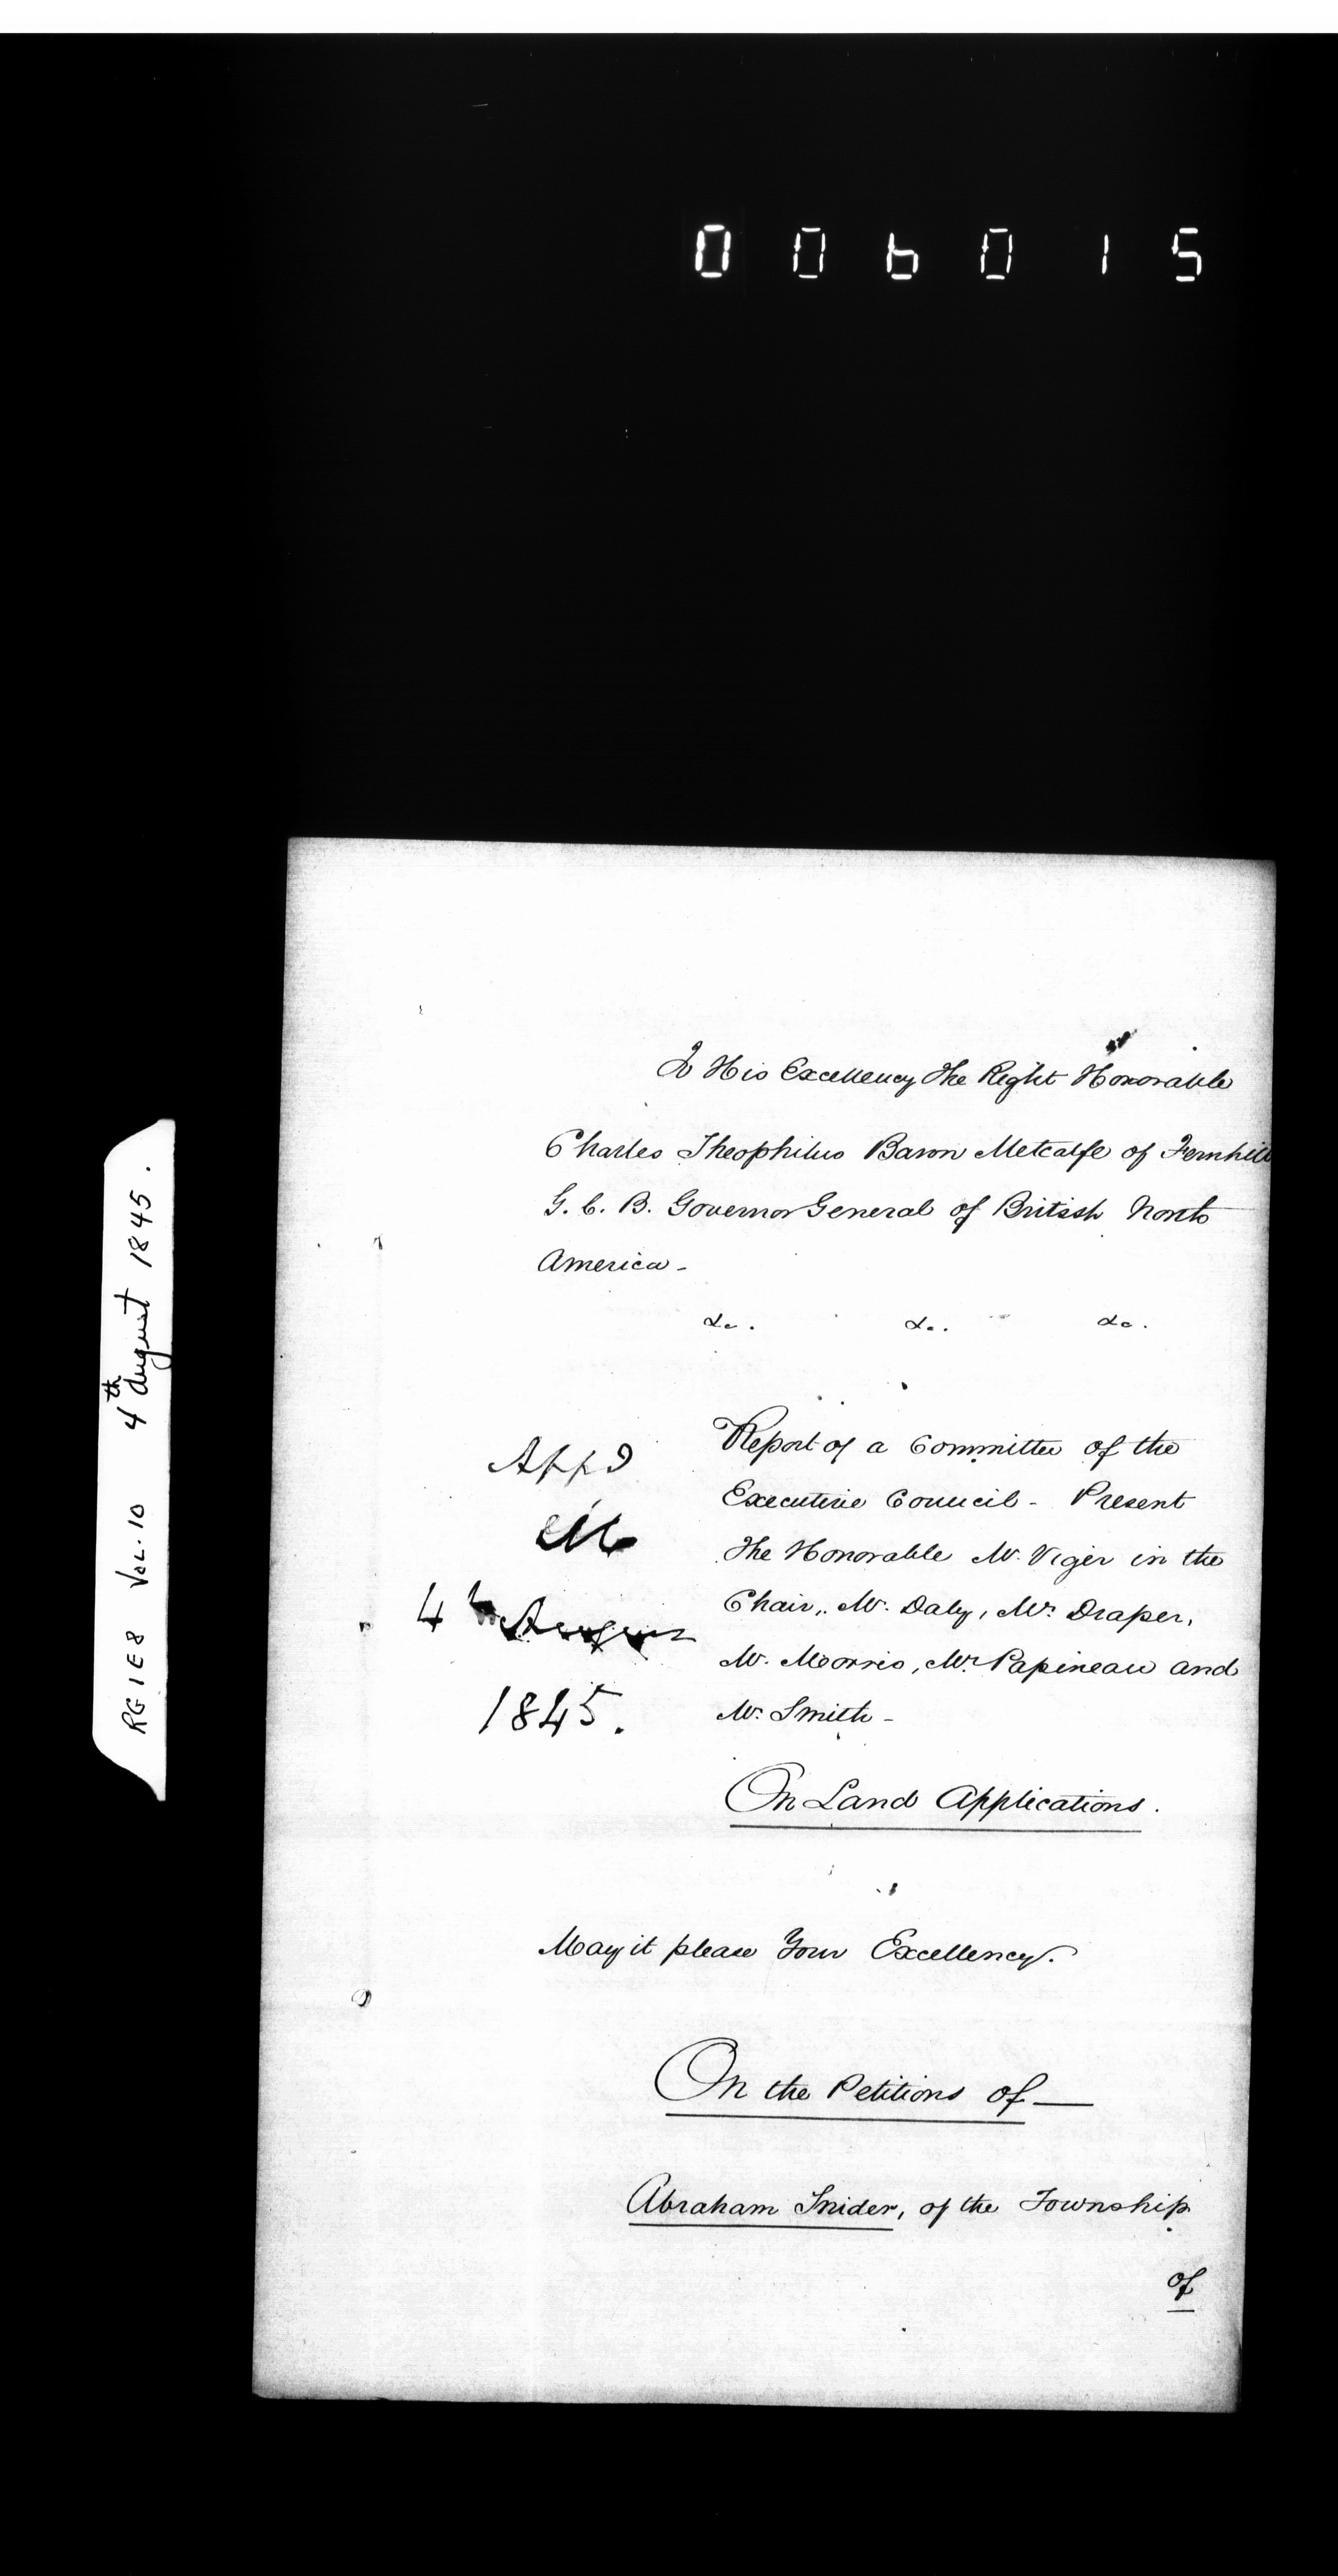 006015
RG 1 E 8 VOL. 10 4th august 1845.
To His Excellency The Right Honorable
Charles Theophilus Baron Metcalfe of Fernhill
G. C. B. Governor General of British North
America -
&c. &c. &c.
Appd
M
4th August
1845.
Report of a Committee of the
Executive Council - Present
The Honorable Mr. Viger in the
Chair, Mr. Daly, Mr. Draper,
Mr. Morris, Mr. Papineau and
Mr. Smith -
On Land Applications.
May it please Your Excellency.
On the Petitions of —
Abraham Snider, of the Township
of